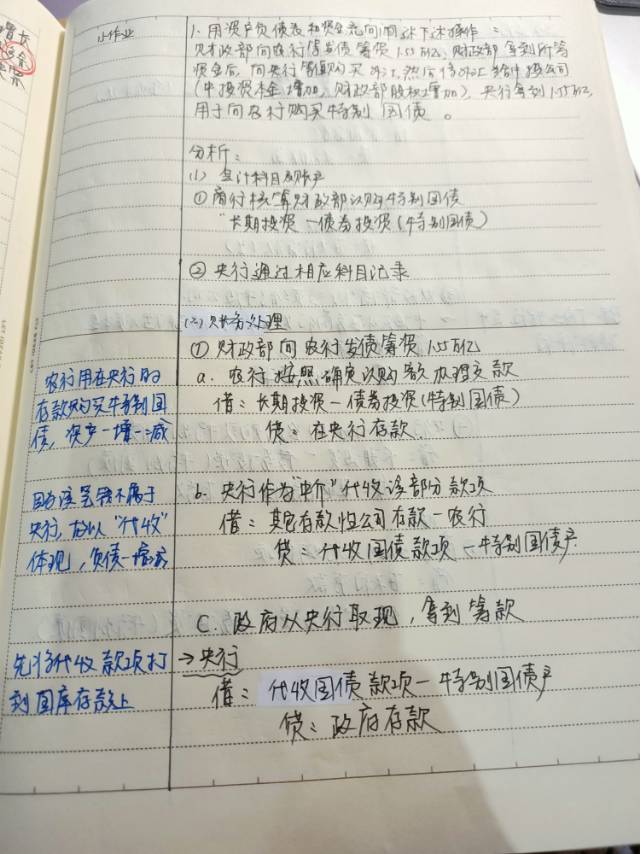 小作业
1. 用资产负债表和资金流向阐述下述操作：
财政部向农行等发债筹资1.55万亿，财政部拿到所筹
资金后，向央行等值购买外汇，然后将外汇给中投公司
（中投资本金增加，财政部股权增加），央行拿到1.55万亿
用于向农行购买特别国债。
分析：
(1) 会计科目及账户
① 商行核算财政部认购特别国债
"长期投资－债券投资（特别国债）
② 央行通过相应科目记录
(二) 账务处理
① 财政部向农行发债筹资1.55万亿
a. 农行按照确定认购额办理交款
借：长期投资－债券投资（特别国债）
贷：在央行存款
农行用在央行的
存款购买特别国
债，资产一增一减
b. 央行作为"中介"代收该部分款项
借：其它存款性公司存款－农行
贷：代收国债款项－特别国债户
因为该笔钱不属于
央行，故以"代收"
体现，负债一增一减
c. 政府从央行取现，拿到筹款
→央行
借：代收国债款项－特别国债户
贷：政府存款
先将代收款项打
到国库存款上